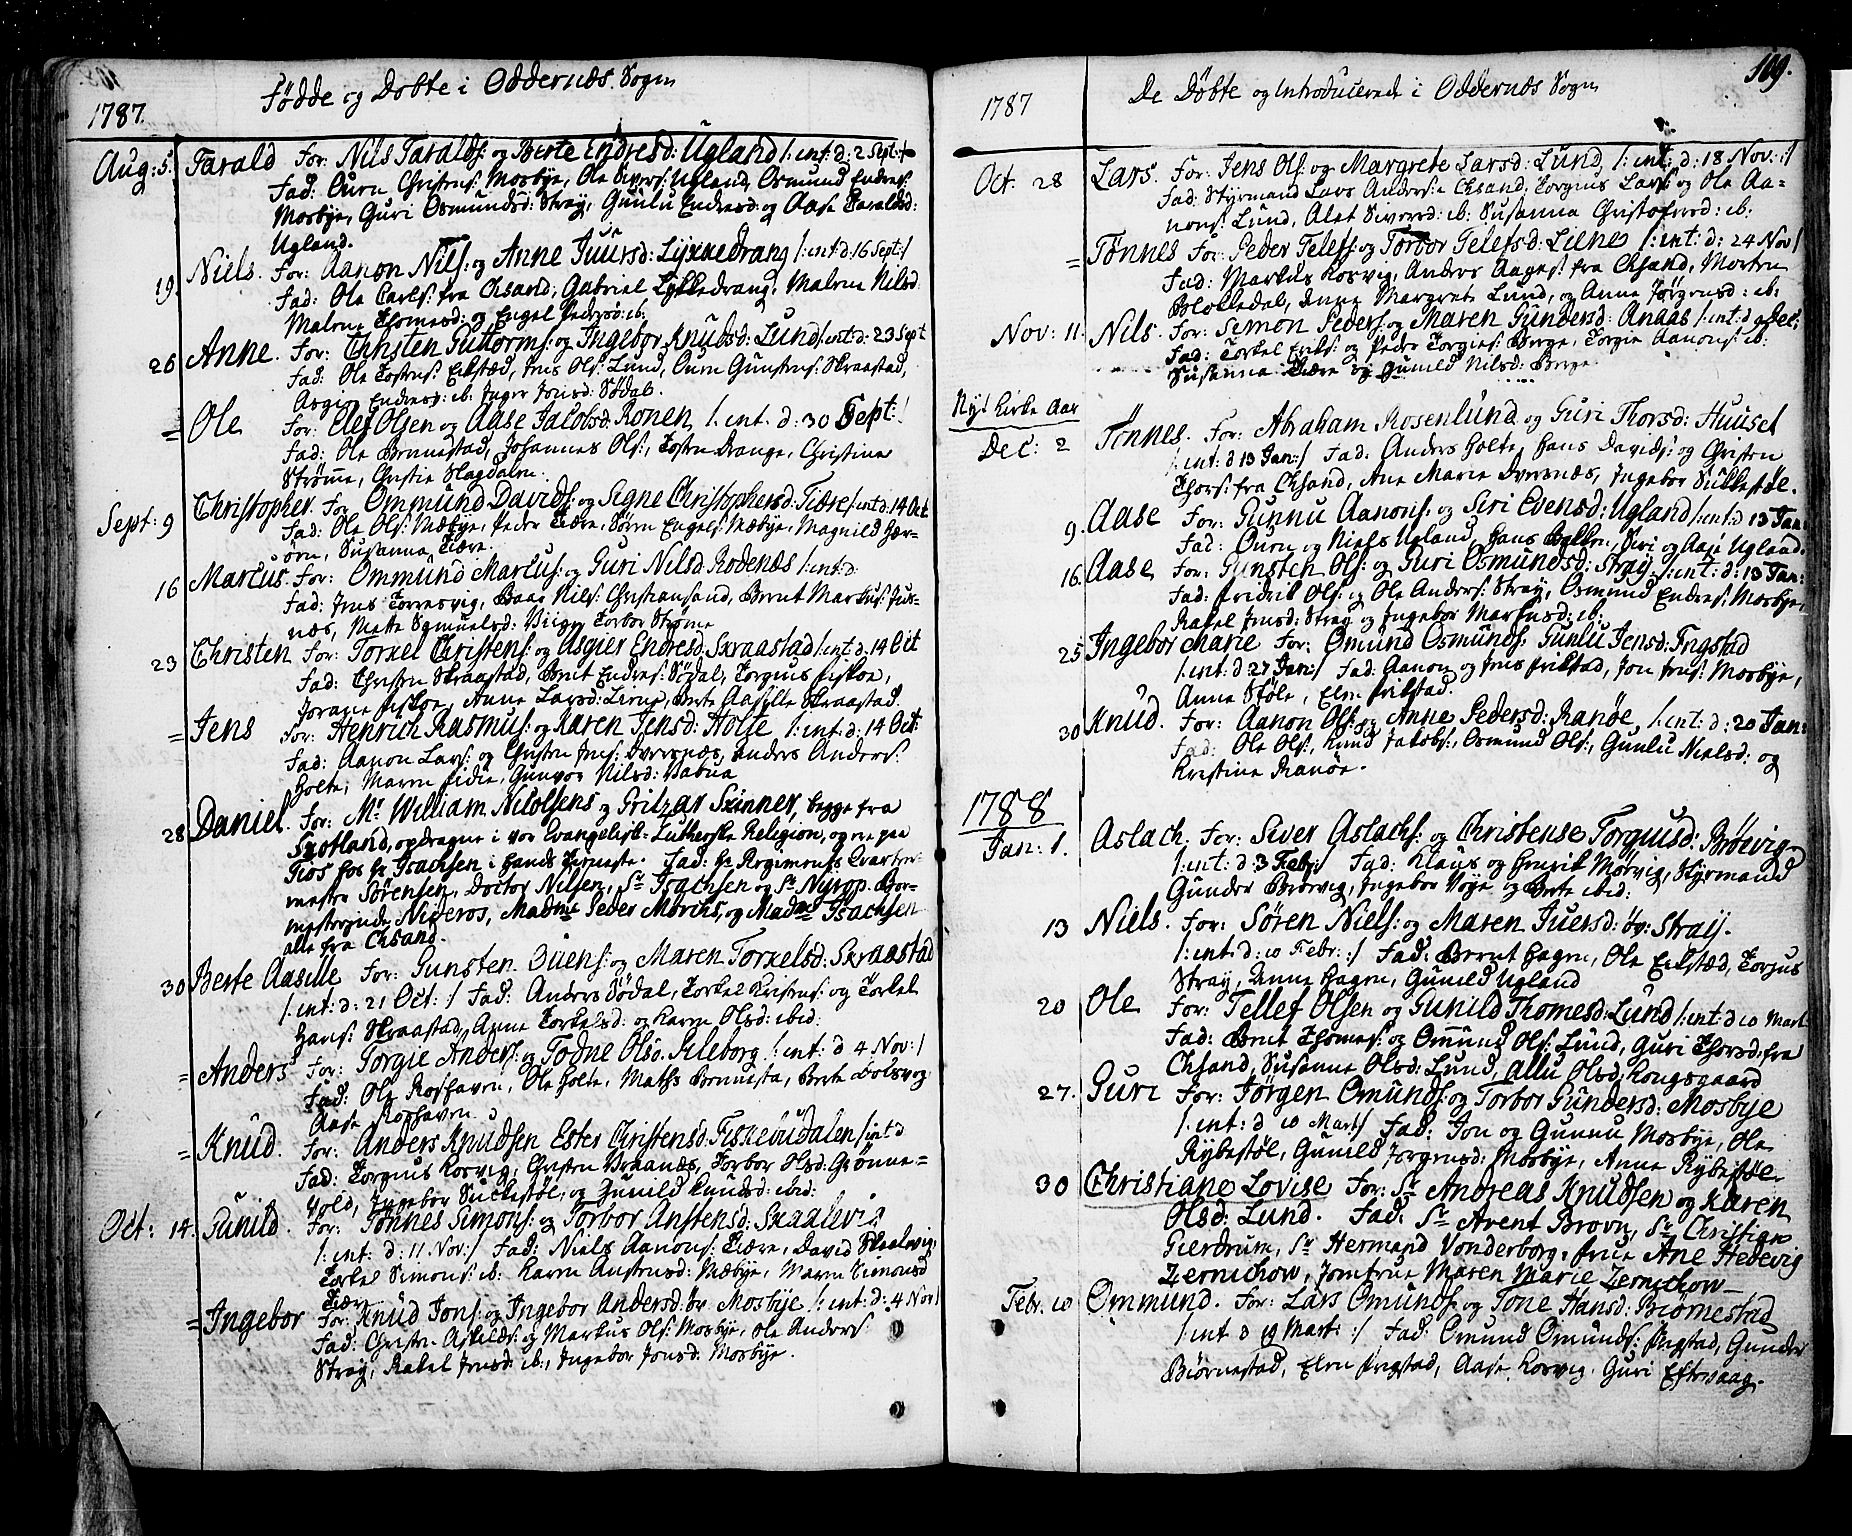 1787.
Fødde og Døbte i Oddernæs Sogn
Aug: 5. Tarald For: Nils Taralds: og Berte Endresd: Ugland /: int: d: 2 Sept:/
Fad: Ouen Christens: Mosbye, Ole Sivers: Ugland, Osmund Endres:
Mosbye, Guri Osmundsd: Stray, Gunlu Endresd: og Aase Taraldsd:
Ugland.
19. Niels. For: Aanon Nils: og Anne Juursd: Lykkedrang /: int: d: 16 Sept:/
Fad: Ole Carls: fra Chsand, Gabriel Lykkedrang, Malene Nilsd:
Malene Thomesd: og Engel Pedersd: ib:
26 Anne. For: Christen Guttorms: og Ingebor Knudsd: Lund /: int: d: 23 Sept
Fad: Ole Tostens: Eikstæd, Jens Ols: Lund, Ouen Gunstens: Skraastad,
Asgier Endresd: ib: Inger Jensd: Sødal.
= Ole For: Elef Olsen og Aase Jacobsd: Ronen /: int. d: 30 Sept:/
Fad: Ole Bennestad, Johannes Ols:, Tosten Drange, Christine
Strømme, Christie Hagdalen.
Sept: 9 Christopher. For Ommund Davids: og Signe Christophersd: Tiære /: int d: 14 Oct
Fad: Ole Ols: Mæbye, Peder Tiære, Søren Engels: Mæbye, Magnild Hær-
øen, Susanna Tiære.
16 Marcus. For: Ommund Marcus: og Guri Nilsd: Rodenæs /: int: d:
Fad: Jens Torresvig, Baar Nils: Christiansand, Bernt Markus: Jus-
næs, Mette Samuelsd: Viigen Torbor Strømme
23 Christen For: Torkel Christens: og Asgier Endresd: Skraastad /: int: d: 14 Oct
Fad: Christen Skraastad, Bent Endres: Sødal, Torgius Fiskoe,
Jorane Fiskoe, Anne Larsd: Lirup, Berte Aasille Skraastad.
= Jens For: Henrich Rasmus: og Karen Jensd: Holte /: int: d: 14 Oct:
Fad: Aanon Lars: og Christen Jens: Dversnæs, Anders Anders:
Holte, Maren Fidie, Gunvor Nilsd: Vabue
28 Daniel. For: Mr. William Nilolsens og Gritzar Skinner, begge fra
Skotland, opdragne i vor Evangelisk-Lutherske Religion, og nu paa
Tios hos Hr Isachsen i hands Tieneste. Fad: Hr Regiments Qvarteer-
mester Sørensen, Doctor Nilsen, Sr Isachsen og Sr Nyrop. Bor-
mesterinde Nideros, Madme Peder Moriks, og Madme Isachsen
alle fra Chsand.
30 Berte Aasille For: Gunsten Ouens: og Maren Torkelsd: Skraastad
/: int: d: 21 Oct: / Fad: Anders Sødal, Torkel Kristens: og Torkel
Hans: Skraastad, Anne Torkelsd: og Karen Olsd: ibid:
= Anders For: Torgie Anders: og Todne Olsd: Kileborg /: int: d 4 Nov: /
Fad: Ole Roshaven, Ole Holte, Mathis Bennesta, Berte Dolsveg
Aase Roshaven
= Knud. For: Anders Knudsen Ester Christensd: Fiskevudalen /: int d
Fad: Torgius Korsvig, Christen Braanæs, Torbor Olsd: Grønne=
vold, Ingebor Suckestøl, og Gunild Knudsd: ibid:
Oct: 14. Gunild. For: Tønnes Simons: og Torbor Anstensd: Skaalevig
/: int: d: 11 Nov:/ Fad: Niels Aanons: Tiære, David Skaalevig,
Torkel Simons: ib: Karen Anstensd: Mæbye, Maren Simonsd
Tiære
= Ingebor For: Knud Jons: og Ingebor Andersd: øv: Mosbye /: int: d: 4 Nov/
Fad: Christen Askilds: og Markus Ols: Mosbye, Ole Anders:
Stray, Rakel Jensd: ib:, Ingebor Jonsd: Mosbye.
109.
1787
De Døbte og Introducerede i Oddernæs Sogn
Oct. 28 Lars. For: Jens Ols: og Margrete Larsd: Lund, /: int: d: 18 Nov: :/
Fad: Styrmand Lars Anders: i Chsand, Torgius Lars: og Ole Aa=
nons: Lund, Alet Siversd: ib: Susanna Christofersd: ib:
= Tønnes For: Peder Telefs: og Torbor Telefsd: Liene /: int: d: 24 Nov/
Fad: Markus Korsvig, Anders Aages: fra Chsand, Morten
Blokkedal, Anne Margrete Lund, og Anne Jørgensd: ib:
Nov: 11. Nils. For: Simon Peders: og Maren Gundersd: Anaas /: int: d 9 Dec:
Fad: Torkel Eriks: og Peder Torgies: Berge, Torgie Aanons: ib:
Susanna Tiære og Gunild Nilsd: Berge
Nyt Kirke Aar
Dec: 2 Tønnes. For: Abraham Rosenlund og Guri Thorsd: Huuset
/: int: d 13 Jan:/ Fad: Anders Holte, Hans Davids: og Christen
Thors: fra Chsand, Ane Marie Dversnæs, Ingebor Sukkestøl.
9. Aase For: Gunnu Aanons: og Siri Evensd: Ugland /: int: d 13 Jan:
Fad: Ouen og Niels Ugland, Hans Ballen, Siri og Aase Ugland.
16. Aase For: Gunsten Ols: og Guri Osmundsd: Stray. /: int: d: 13 Jan:
Fad: Fredrik Ols: og Ole Anders: Stray, Osmund Endres: Mosbye,
Rakel Jensd: Stray og Ingebor Markusd: ib:
25 Ingebor Marie For: Omund Osmunds: Gunlu Jensd: Fngstad
/: int: d 27 Jan:/ Fad: Aanon og Jens Frikstad, Jon Jens: Mosbye,
Anna Støle, Elen Frikstad.
30 Knud. For: Aanon Ols: og Anne Pedersd: Ranøe /: int: d: 20 Jan:
Fad: Ole Ols:, Knud Jakobs:, Osmund Ols:, Gunlu Nielsd: og
Kristine Ranøe.
1788
Jan: 1. Aslach. For: Siver Aslachs: og Christense Torgiusd: Brøevig
/: int: d 3 Feb:/ Fad: Klaus og Henrik Mørvig, Styrmand
Gunder Brøevig, Ingebor Voye og Berte ibid:
13 Niels. For: Søren Niels: og Maren Juersd: øv: Stray.
/: int: d: 10 Febr: :/ Fad: Bernt Hagen, Ole Eikstæd, Torjus
Stray, Anne Hagen, Gunild Ugland
20 Ole For: Tellef Olsen og Gunild Thomesd: Lund /: int: d 10 Mart
Fad: Bent Thomes: og Ommund Ols: Lund, Guri Thorsd: fra
Chsand, Susanne Olsd: Lund, Allu Olsd: Kongsgaard
27. Guri For: Jørgen Omunds: og Torbor Gundersd: Mosbye
/: int: d 10 Mart/ Fad: Jon og Gunnu Mosbye, Ole
Rybestøl, Gunild Jørgensd: Mosbye, Anne Rybestøl
30 Christiane Lovise For: Sr Andreas Knudsen og Karen
Olsd: Lund. Fad: Sr Arent Brovn, Sr Christian
Gierdrum, Sr Hermand Vonderborg, Frue Ane Hedevig
Zernichow, Jomfrue Maren Marie Zernichow
Febr. 10 Ommund. For: Lars Omunds: og Tone Hansd: Biørnestad
/: int d 19 Mart: :/ Fad: Omund Omunds: Fregstad, Gunder
Biørnestad, Elen Fregstad, Aase Korsvig, Guri Eftersaag.